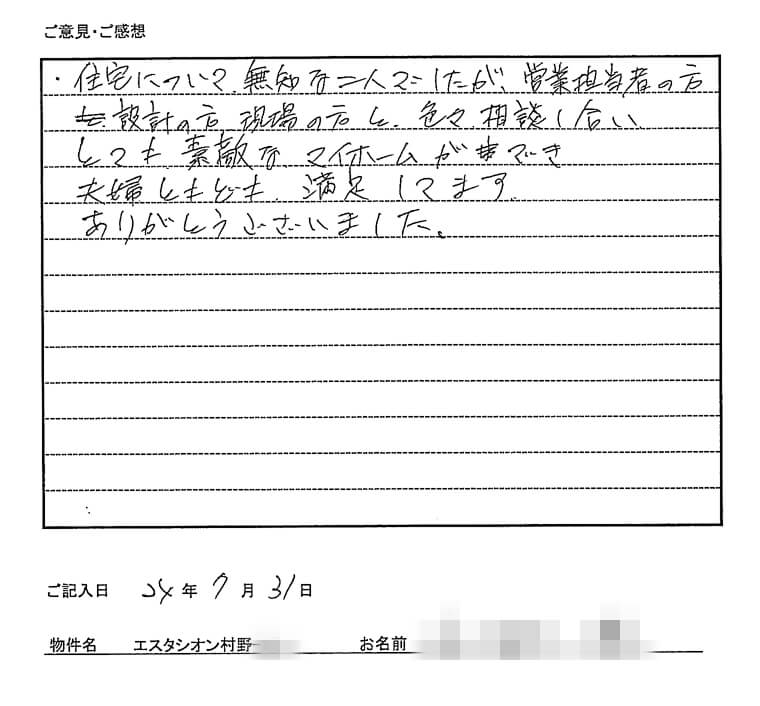 ご意見・ご感想
・住宅について、無知な二人でしたが、営業担当者の方
設計の方 現場の方と、色々 相談し合い
とても 素敵な マイホームが でき
夫婦ともども、満足してます。
ありがとうございました。
ご記入日 24年 7月 31日
物件名 エスタシオン村野 お名前